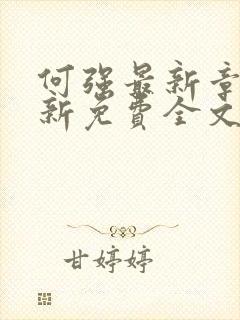 何强最新章
新免費全文
甘婷婷